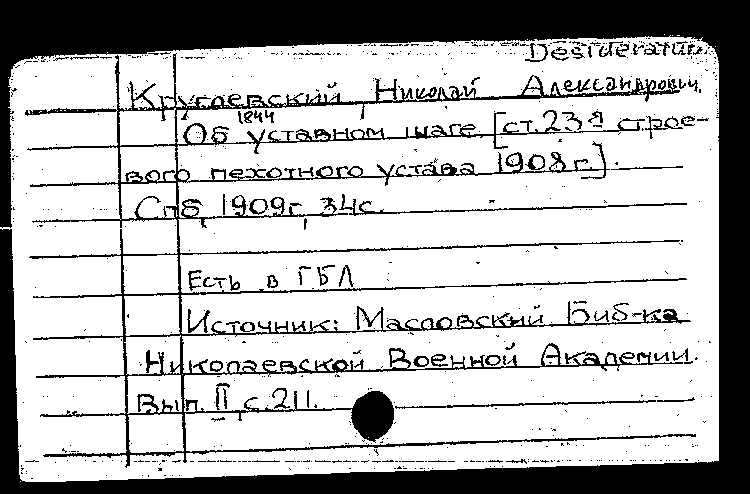 Desideratum
Круглевский, Николай Александрович.
1844
Об уставном шаге [ст. 23й строе-
вого пехотного устава 1908 г.].
Спб, 1909г, 34с.
Есть в ГБЛ
Источник: Масловский Биб-ка
Николаевской Военной Академии.
Вып. II, с. 211.